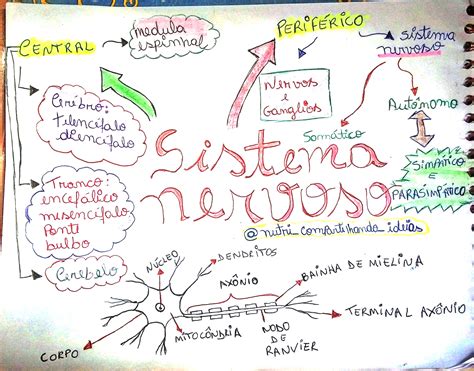 CENTRAL
medula
espinhal
PERIFÉRICO
sistema
nervoso
Cérebro:
telencéfalo
diencéfalo
Nervos
e
Ganglios
Autônomo
Somático
Sistema
nervoso
SIMPÁTICO
e
PARASIMPÁTICO
Tranco:
encefálico
mesencéfalo
Ponti
bulbo
@nutri_compartilhando_ideias
Cirebelo
NÚCLEO
DENDRITOS
AXÔNIO
BAINHA DE MIELINA
MITOCÔNDRIA
NODO
DE
RANVIER
TERMINAL AXÔNIO
CORPO